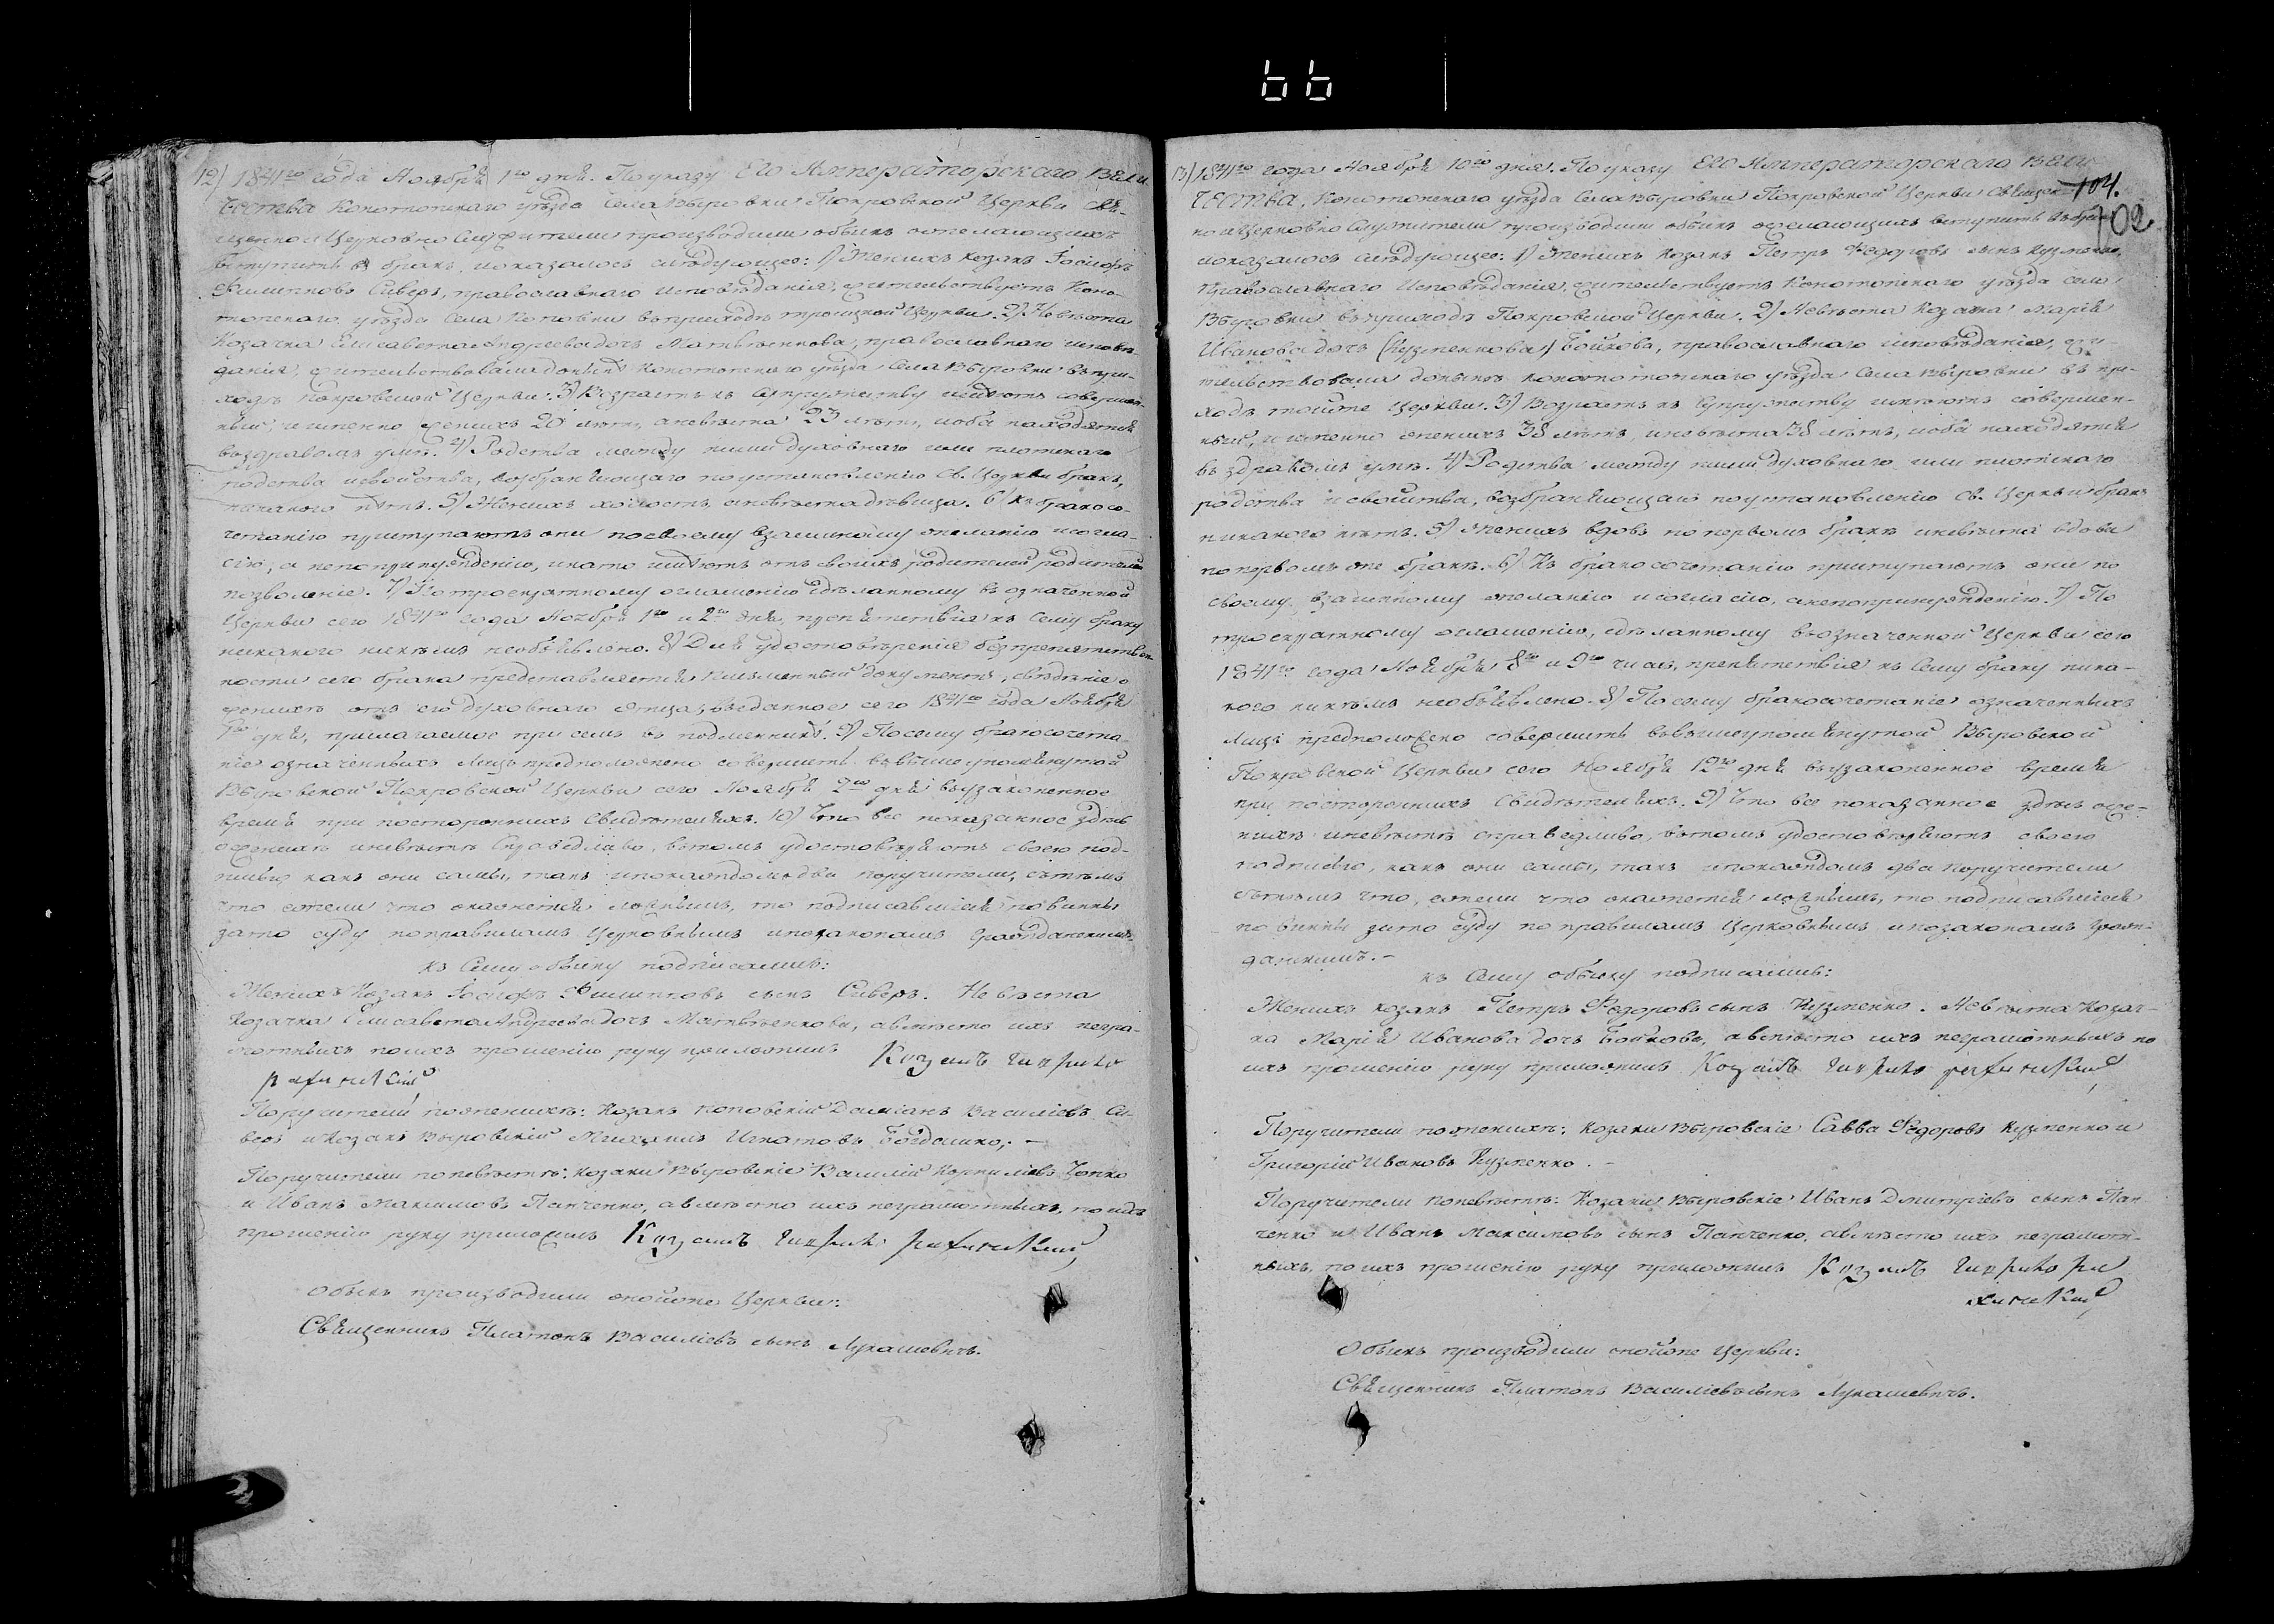 66
12) 1841го года Ноября 1го дня. По указу Его Императорскаго Вели-
чества Конотопскаго уѣзда села Выровки Покровской Церкви Свя-
щенно и Церковно Служители производили обыскъ о желающихъ
вступить въ бракъ, и оказалось слѣдующее: 1) Женихъ козакъ Іосифъ
Филипповъ Сиверъ, православнаго исповѣданія, жительствуетъ Коно-
топскаго уѣзда села Поповки въ приходѣ Троицкой Церкви. 2) Невѣста
Козачка Елисавета Андреева дочь Матвѣенкова, православнаго исповѣ-
данія, жительствовала донынѣ Конотопскаго уѣзда села Выровки въ при-
ходѣ Покровской Церкви. 3) Возрастъ къ супружеству имѣютъ совершен-
ный, и именно женихъ 20 лѣтъ, а невѣста 23 лѣтъ, и оба находятся
въ здравомъ умѣ. 4) Родства между ними духовнаго или плотскаго
родства и свойства, возбраняющаго по установленію Св. Церкви бракъ,
никакого нѣтъ. 5) Женихъ холостъ, а невѣста дѣвица. 6) Къ бракосо-
четанію приступаютъ они по своему взаимному желанію и согла-
сію, а не по принужденію, и на то имѣютъ отъ своихъ родителей
позволеніе. 7) По троекратному оглашенію сдѣланному въ означенной
Церкви сего 1841го года Ноября 1го и 2го дня, препятствія къ сему браку
никакого никѣмъ не объявлено. 8) Для удостовѣренія безпрепятствен-
ности сего брака представляется письменный документъ, свѣдѣніе о
женихѣ отъ его духовнаго отца, выданное сего 1841го года Ноября
дня, прилагаемое при семъ въ подлинникѣ. 9) Посему бракосочета-
ніе означенныхъ лицъ предположено совершить въ вышеупомянутой
Выровской Покровской Церкви сего Ноября 2го дня въ узаконенное
время при постороннихъ свидѣтеляхъ. 10) Что все показанное здѣсь
о женихѣ и невѣстѣ справедливо, въ томъ удостовѣряютъ своею под-
писью какъ они сами, такъ и по каждомъ два поручители, съ тѣмъ
что ежели что окажется ложнымъ, то подписавшіеся повинны
за то суду по правиламъ Церковнымъ и по законамъ Гражданскимъ.
къ сему обыску подписались:
Женихъ козакъ Іосифъ Филипповъ сынъ Сиверъ. Невѣста
Козачка Елисавета Андреева дочь Матвѣенкова, а вмѣсто ихъ негра-
мотныхъ по ихъ прошенію руку приложилъ
Поручители по женихѣ: Козакъ Поповскій Даміанъ Василіевъ Си-
веръ и Козакъ Выровскій Михаилъ Игнатовъ Богдашко; –
Поручители по невѣстѣ: козаки Выровскіе Василій Корниліевъ
и Иванъ Максимовъ Панченко, а вмѣсто ихъ неграмотныхъ, по ихъ
прошенію руку приложилъ
Обыскъ производили онойже Церкви:
Священникъ Платонъ Василіевъ сынъ Лукашевичъ.
104.
102
13) 1841го года Ноября 10го дня. По указу Его Императорскаго Вели-
чества, Конотопскаго уѣзда села Выровки Покровской Церкви Священ-
но и Церковно Служители производили обыскъ о желающихъ вступить въ бракъ
и оказалось слѣдующее: 1) Женихъ козакъ Петръ Федоровъ сынъ Кузменко,
Православнаго Исповѣданія, жительствуетъ Конотопскаго уѣзда села
Выровки въ приходѣ Покровской Церкви. 2) Невѣста Козачка Марія
Иванова дочь (Кузменкова) Бойкова, православнаго исповѣданія, жи-
тельствовала донынѣ Конотопскаго уѣзда села Выровки въ при-
ходѣ тойже Церкви. 3) Возрастъ къ супружеству имѣютъ совершен-
ный, и именно женихъ 38 лѣтъ, и невѣста 38 лѣтъ, и оба находятся
въ здравомъ умѣ. 4) Родства между ними духовнаго или плотскаго
родства и свойства, возбраняющаго по установленію Св. Церкви бракъ
никакого нѣтъ. 5) Женихъ вдовъ по первомъ бракѣ и невѣста вдова
по первомъ же бракѣ. 6) Къ бракосочетанію приступаютъ они по
своему взаимному желанію и согласію, а не по принужденію. 7) По
троекратному оглашенію, сдѣланному въ означенной Церкви сего
1841го года Ноября 8го и 9го числъ, препятствія къ сему браку ника-
кого никѣмъ не объявлено. 8) Посему бракосочетаніе означенныхъ
лицъ предположено совершить въ вышеупомянутой Выровской
Покровской Церкви сего Ноября 12го дня въ узаконенное время
при постороннихъ свидѣтеляхъ. 9) Что все показанное здѣсь о же-
нихѣ и невѣстѣ справедливо, въ томъ удостовѣряютъ своею
подписью, какъ они сами, такъ и по каждомъ два поручители
съ тѣмъ что, ежели что окажется ложнымъ, то подписавшіеся
повинны за то суду по правиламъ Церковнымъ и по законамъ Граж-
данскимъ. –
къ сему обыску подписались:
Женихъ козакъ Петръ Федоровъ сынъ Кузменко. Невѣста Козач-
ка Марія Иванова дочь Бойкова, а вмѣсто ихъ неграмотныхъ по
ихъ прошенію руку приложилъ
Поручители по женихѣ: козаки Выровскіе Савва Федоровъ Кузменко и
Григорій Ивановъ Кузменко. –
Поручители по невѣстѣ: Козаки Выровскіе Иванъ Дмитріевъ сынъ Пан-
ченко и Иванъ Максимовъ сынъ Панченко, а вмѣсто ихъ неграмот-
ныхъ, по ихъ прошенію руку приложилъ
Обыскъ производили онойже Церкви:
Священникъ Платонъ Василіевъ сынъ Лукашевичъ.